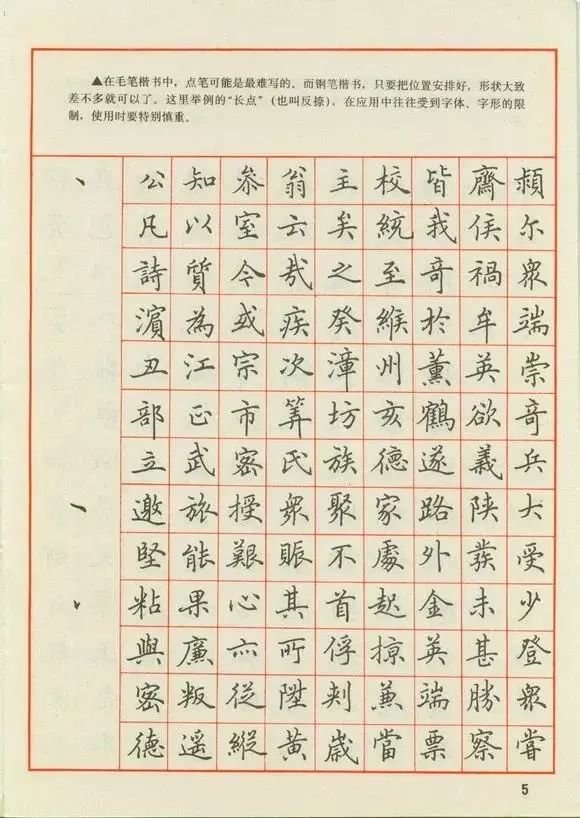 ▲在毛笔楷书中，点笔可能是最难写的。而钢笔楷书，只要把位置安排好，形状大致
差不多就可以了。这里举例的“长点”（也叫反捺），在应用中往往受到字体、字形的限
制，使用时要特别慎重。
丶 公 知 参 翁 主 校 皆 齋 頻
凡 以 室 云 矣 統 我 侯 尔
詩 質 今 哉 之 至 奇 禍 衆
濵 為 或 疾 癸 緱 於 牟 端
丑 江 宗 次 漳 州 薰 英 崇
部 正 市 筭 坊 亥 鶴 欲 奇
立 武 密 氏 族 德 遂 義 兵
邀 旅 授 衆 聚 家 路 陕 大
堅 能 艱 賑 不 處 外 發 受
粘 果 心 其 首 起 金 未 少
與 廉 亦 所 俘 掠 英 甚 登
密 叛 從 陞 刾 兼 端 勝 衆
德 遥 縱 黄 歳 當 票 察 嘗
5